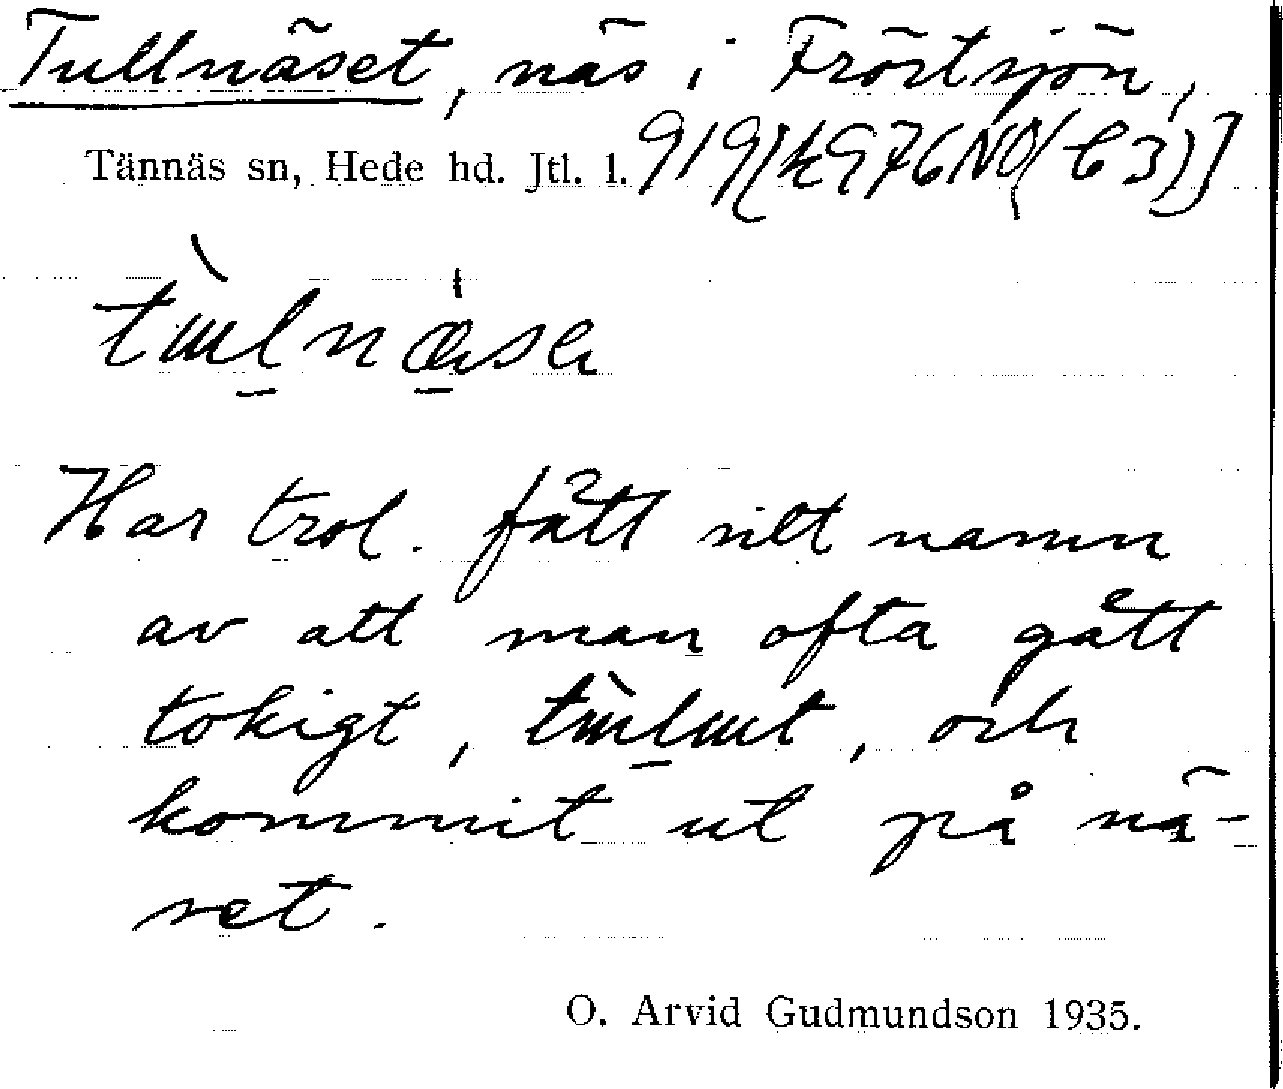 Tullnäset, näs i Fröstsjön,
Tännäs sn, Hede hd. Jtl. l. 919[k976NO(C3)]
Har trol. fått sitt namn
av att man ofta gått
tokigt, och
kommit ut på nä-
set.
O. Arvid Gudmundson 1935.